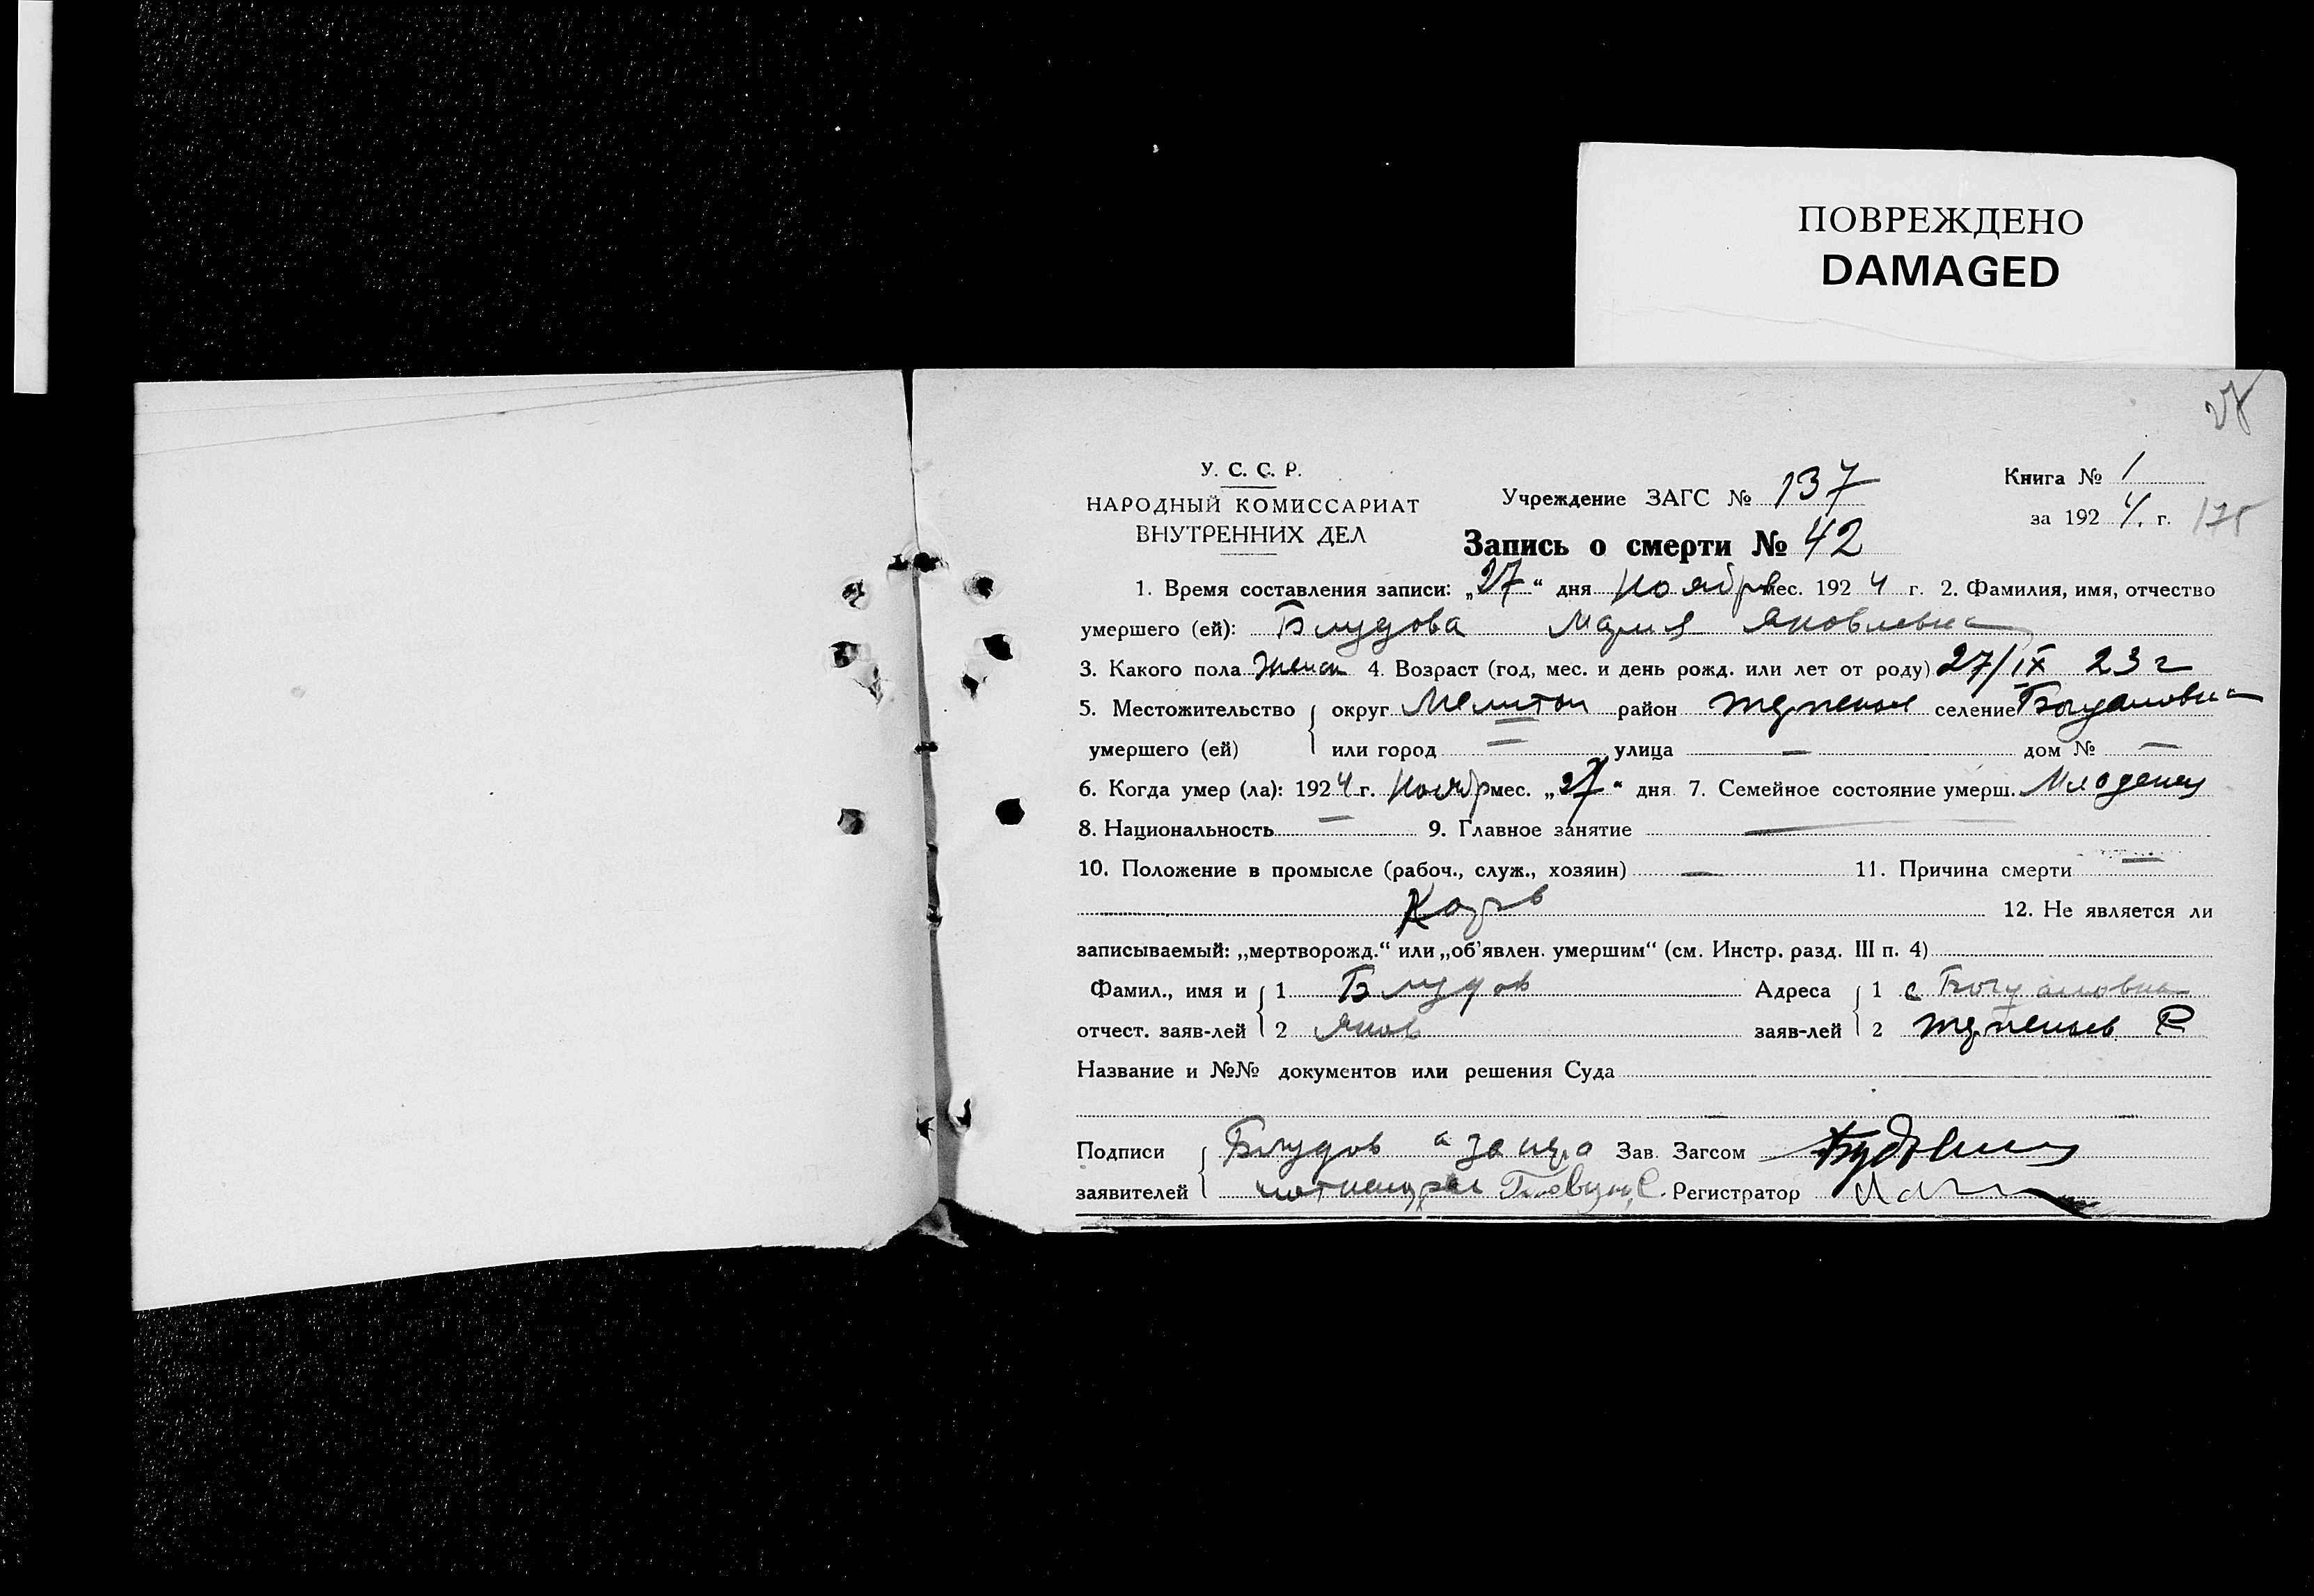 ПОВРЕЖДЕНО
DAMAGED
У. С. С. Р.
НАРОДНЫЙ КОМИССАРИАТ
ВНУТРЕННИХ ДЕЛ
Учреждение ЗАГС № 137
Запись о смерти № 42
Книга № 1
за 192 4. г. 175
1. Время составления записи: „27“ дня ноября мес. 192 4 г. 2. Фамилия, имя, отчество
умершего (ей): Блудова Мария Яковлевна
3. Какого пола женск 4. Возраст (год, мес. и день рожд. или лет от роду) 27/IX 23 г
5. Местожительство округ Мелитоп район селение Богдановка
умершего (ей) или город — улица — дом № —
6. Когда умер (ла): 1924 г. Ноябр мес. „27“ дня 7. Семейное состояние умерш. Младенец
8. Национальность — 9. Главное занятие —
10. Положение в промысле (рабоч., служ., хозяин) — 11. Причина смерти —
Корь 12. Не является ли
записываемый: „мертворожд.“ или „об'явлен. умершим“ (см. Инстр. разд. III п. 4)
Фамил., имя и 1 Блудов Адреса 1 с Богдановка
отчест. заяв-лей 2 Яков заяв-лей 2 Р
Название и №№ документов или решения Суда
Подписи Блудов а за него Зав. Загсом
заявителей Регистратор